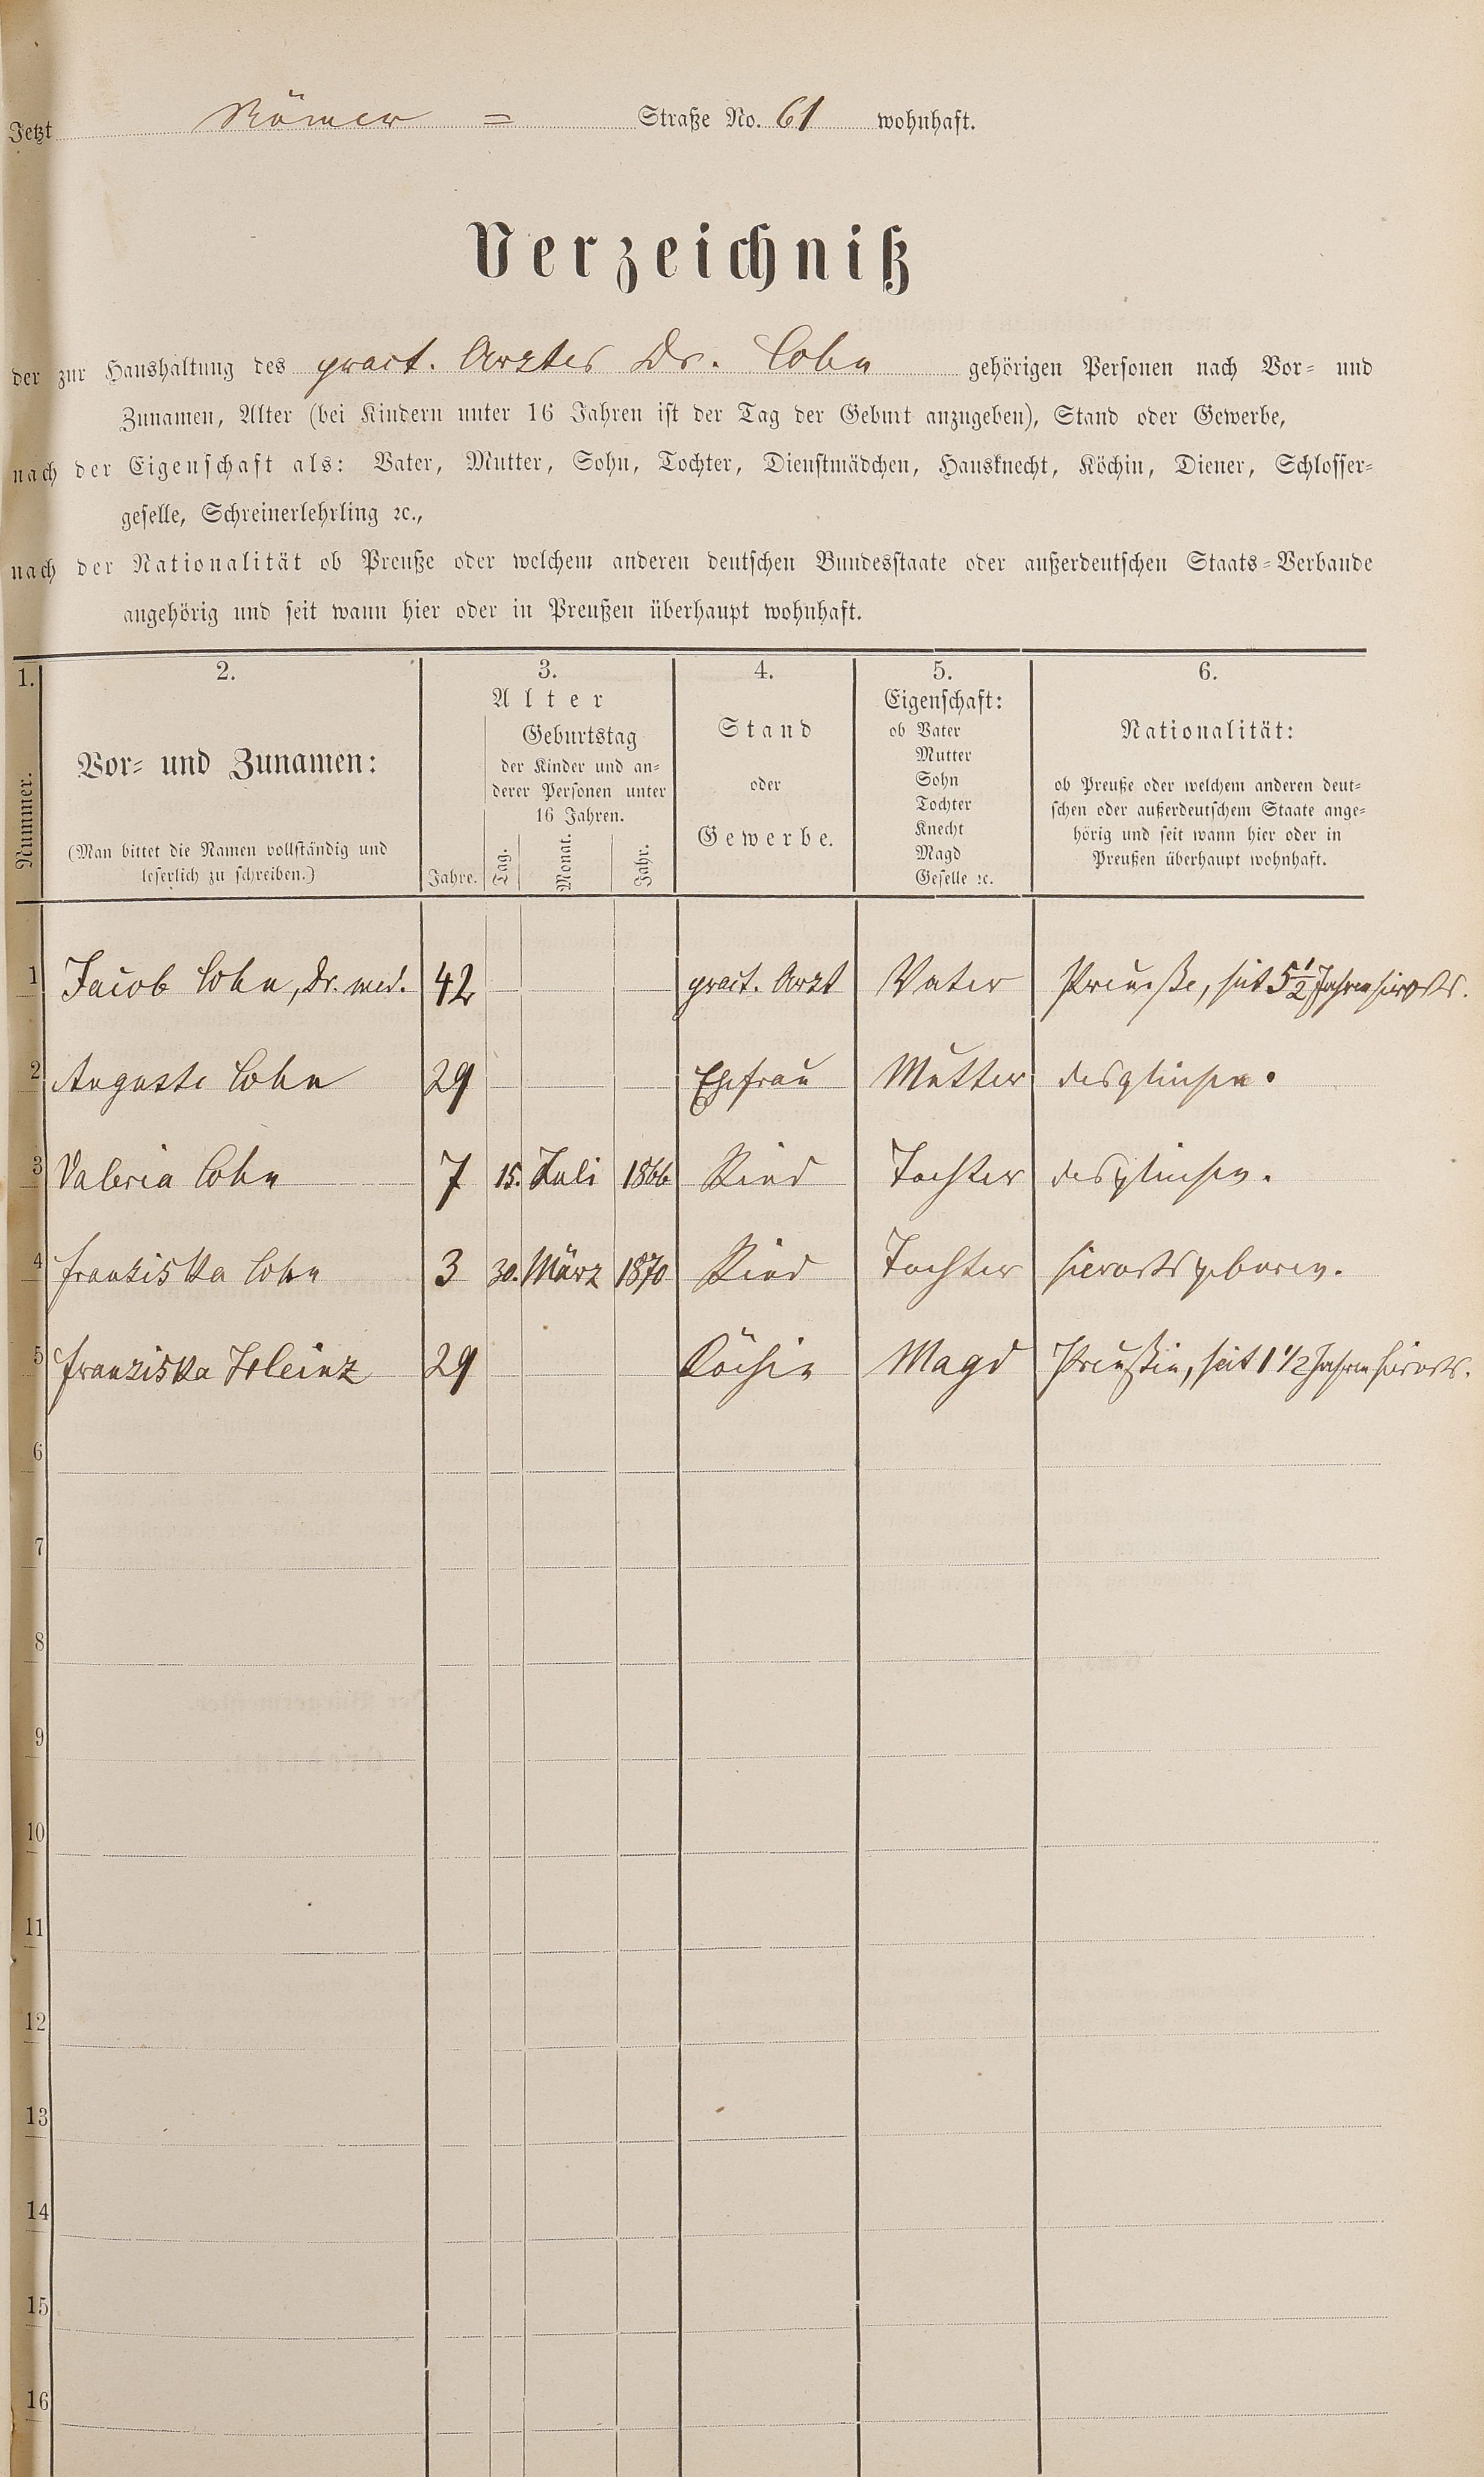 Jetzt Römer = Straße No. 61 wohnhaft.
Verzeichniß
der zur Haushaltung des pract. Arztes Dr. Cohn gehörigen Personen nach Vor- und
Zunamen, Alter (bei Kindern unter 16 Jahren ist der Tag der Geburt anzugeben), Stand oder Gewerbe,
nach der Eigenschaft als: Vater, Mutter, Sohn, Tochter, Dienstmädchen, Hausknecht, Köchin, Diener, Schlosser-
geselle, Schreinerlehrling ꝛc.,
nach der Nationalität ob Preuße oder welchem anderen deutschen Bundesstaate oder außerdeutschen Staats-Verbande
angehörig und seit wann hier oder in Preußen überhaupt wohnhaft.
1. 2. 3. 4. 5. 6.
Nummer.
Vor- und Zunamen:
(Man bittet die Namen vollständig und
leserlich zu schreiben.)
Alter
Geburtstag
der Kinder und an-
derer Personen unter
16 Jahren.
Jahre. Tag. Monat. Jahr.
Stand
oder
Gewerbe.
Eigenschaft:
ob Vater
Mutter
Sohn
Tochter
Knecht
Magd
Geselle ꝛc.
Nationalität:
ob Preuße oder welchem anderen deut-
schen oder außerdeutschem Staate ange-
hörig und seit wann hier oder in
Preußen überhaupt wohnhaft.
1 Jacob Cohn, Dr. med. 42 pract. Arzt Vater Preuße, seit 5 1/2 Jahren hierorts.
2 Auguste Cohn 29 Ehefrau Mutter desgleichen.
3 Valeria Cohn 7 15. Juli 1866 Kind Tochter desgleichen.
4 Franziska Cohn 3 30. März 1870 Kind Tochter hierorts geboren.
5 Franziska 29 Köchin Magd Preußin, seit 1 1/2 Jahren hierorts.
6
7
8
9
10
11
12
13
14
15
16